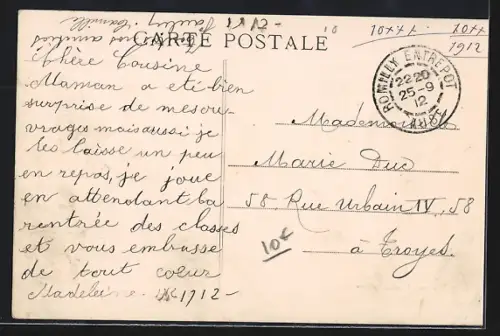 1912-
CARTE POSTALE
10xxx. 10xx
1912
Chère Cousine
Maman a eté bien
surprise de mes ou-
vrages mais aussi je
les laisse un peu
en repos, je joue
en attendant la
rentrée des classes
et vous embrasse
de tout cœur
Madeleine. 1912-
ROMILLY ENTREPOT
22 20
25-9
12
AUBE
Mademoiselle
Marie Duc
58 Rue Urbain IV, 58
à Troyes.
10€